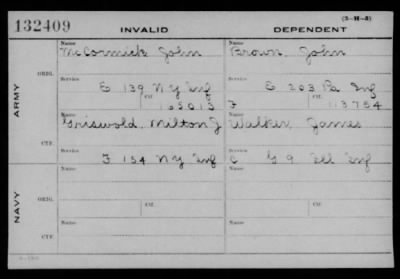 132409 INVALID DEPENDENT (3-H-3)
Name Name
McCormick John Brown, John
ORIG.
Service Service
E 139 N Y Inf E 203 Pa Inf
Ctf. Ctf.
113754
ARMY
Name Name
Griswold, Milton J Walker, James
CTF.
Service Service
F 154 N Y Inf C G 9 Ill Inf
Name Name
ORIG.
NAVY
Ctf. Ctf.
Name Name
CTF.